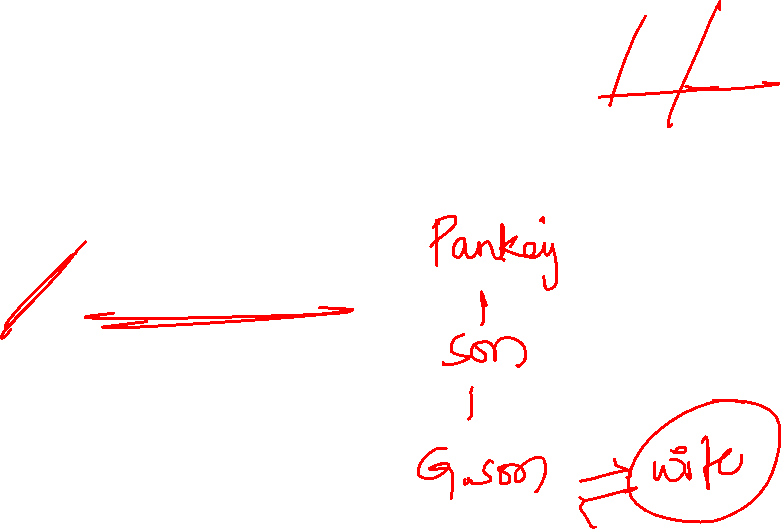 Pankaj
son
G.son
wife